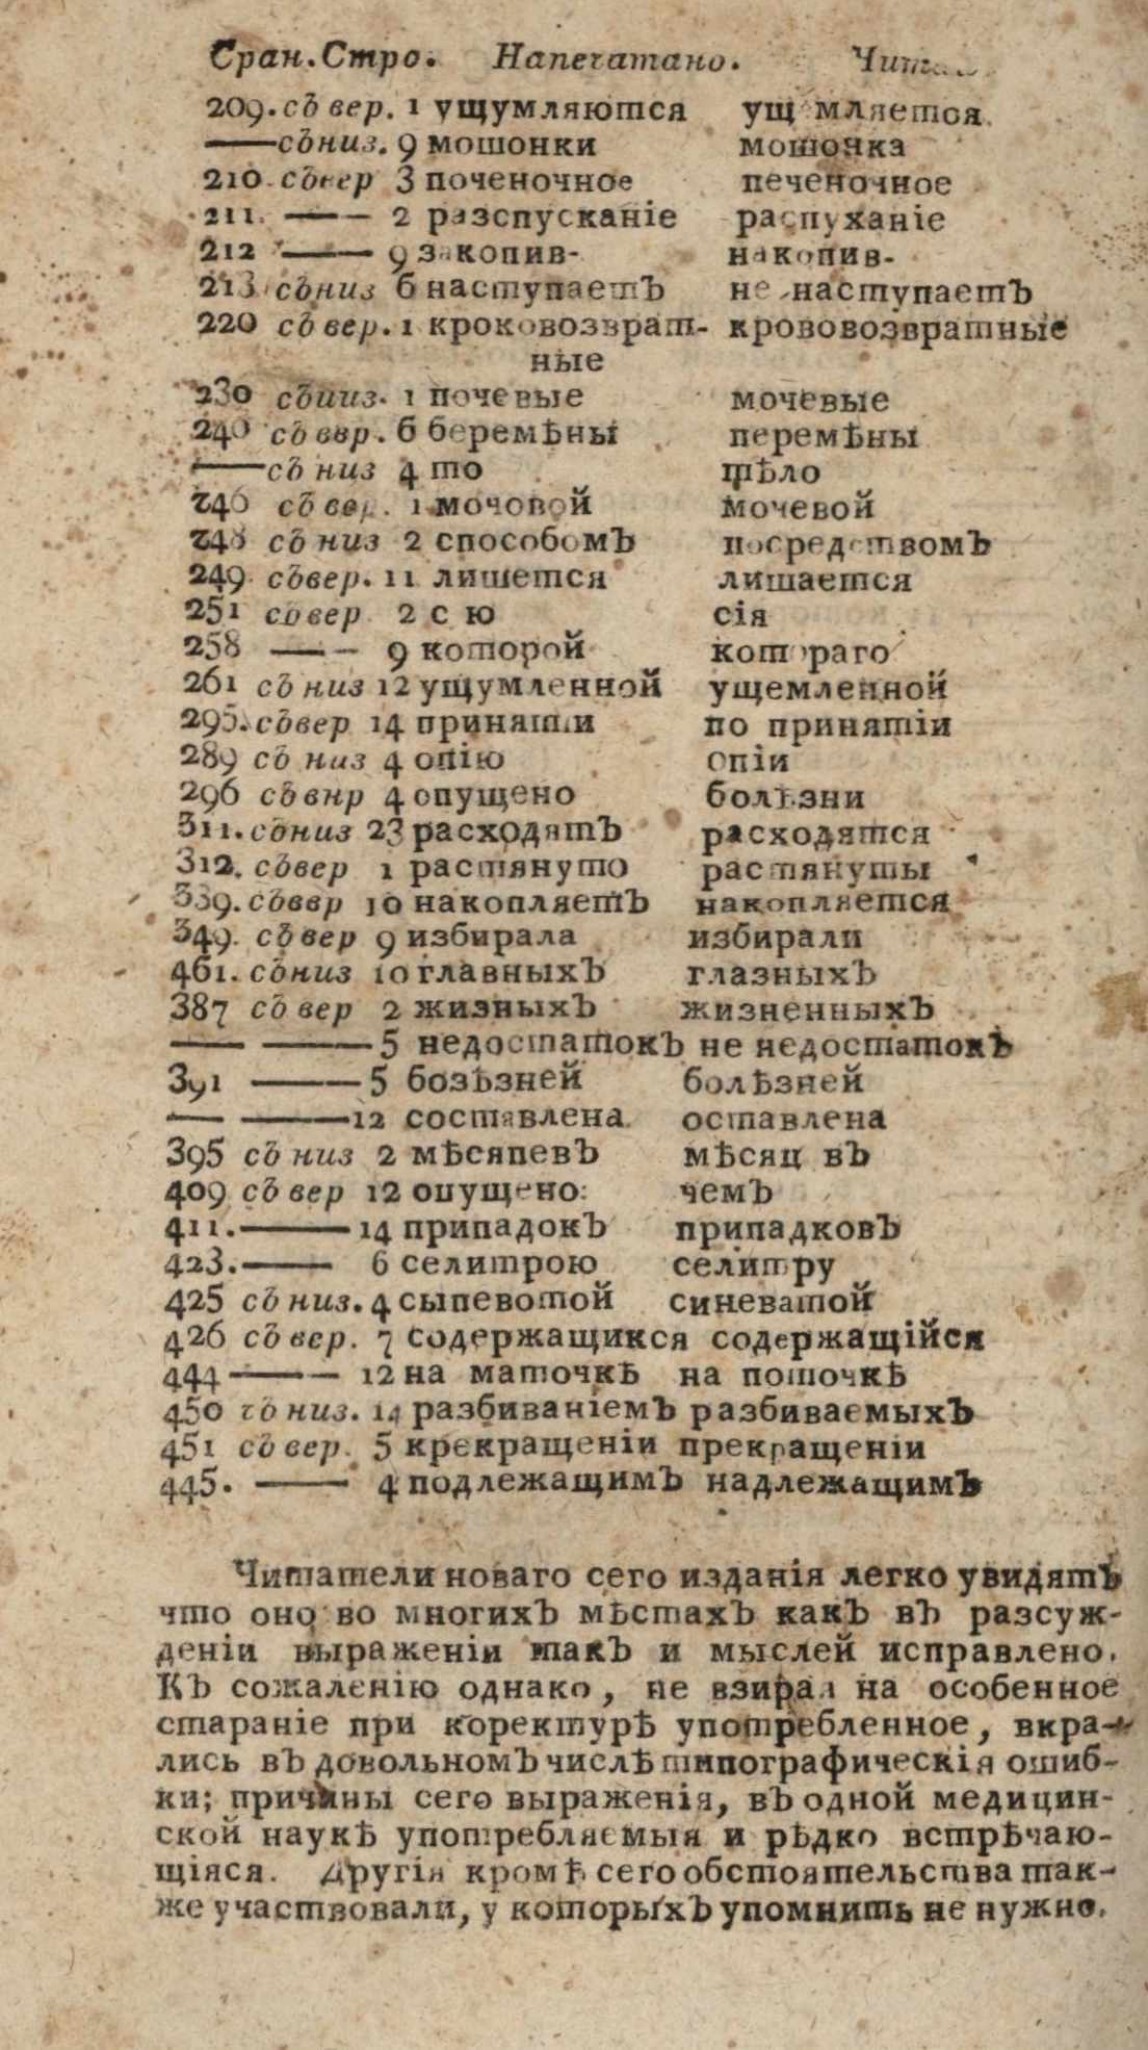 Сран. Стро. Напечатано.
209. съ вер. 1 ущумляются ущ мляется.
—— съ низ. 9 мошонки мошонка
210 съ вер 3 поченочное печеночное
211. —— — 2 разспусканіе распуханіе
212 —— 9 закопив- накопив-
213 съ низ 6 наступаетъ не наступаетъ
220 съ вер. 1 кроковозврат- крововозвратные
ные
230 съ низ. 1 почевые мочевые
240 съ ввр. 6 беремѣны перемѣны
—— съ низ 4 то тѣло
246 съ вер. 1 мочовой мочевой
248 съ низ 2 способомъ посредствомъ
249 съ вер. 11 лишется лишается
251 съ вер 2 с ю сія
258 —— — 9 которой котораго
261 съ низ 12 ущумленной ущемленной
295. съ вер 14 принятіи по принятіи
289 съ низ 4 опію опіи
296 съ внр 4 опущено болѣзни
311. съ низ 23 расходятъ расходятся
312. съ вер 1 растянуто растянуты
339. съ ввр 10 накопляетъ накопляется
349. съ вер 9 избирала избирали
461. съ низ 10 главныхъ глазныхъ
387 съ вер 2 жизныхъ жизненныхъ
—— —— 5 недостатокъ не недостатокъ
391 —— 5 бозѣзней болѣзней
—— —— 12 составлена. оставлена
395 съ низ 2 мѣсяпевъ мѣсяц въ
409 съ вер 12 опущено: чемъ
411. —— 14 припадокъ припадковъ
423. —— 6 селитрою селитру
425 съ низ. 4 сыпевотой синеватой
426 съ вер. 7 содержащикся содержащійся
444 —— — 12 на маточкѣ на поточкѣ
450 съ низ. 14 разбиваніемъ разбиваемыхъ
451 съ вер. 5 крекращеніи прекращеніи
445. —— 4 подлежащимъ надлежащимъ
Читатели новаго сего изданія легко увидятъ
что оно во многихъ мѣстахъ какъ въ разсуж-
деніи выраженіи такъ и мыслей исправлено.
Къ сожаленію однако, не взирая на особенное
стараніе при коректурѣ употребленное, вкра-
лись въ довольномъ числѣ типографическія ошиб-
ки; причины сего выраженія, въ одной медицин-
ской наукѣ употребляемыя и рѣдко встрѣчаю-
щіяся. Другія кромѣ сего обстоятельства так-
же участвовали, у которыхъ упомнить не нужно.